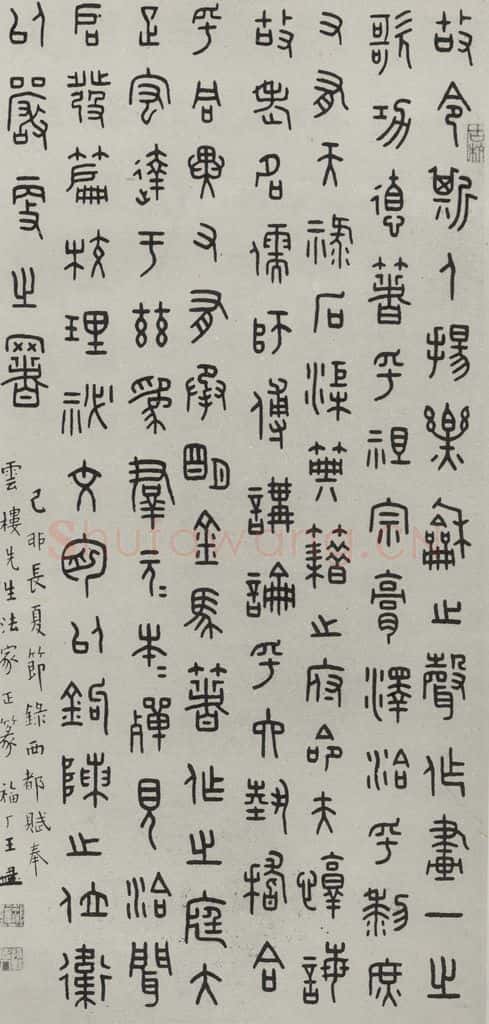 故令斯人揚樂龢之聲作畫一之
歌功德著乎祖宗膏澤洽乎黎庶
又有天祿石渠典籍之府命夫諄誨
故老名儒師傅講論乎六藝稽合
乎同異又有承明金馬著作之庭大
疋宏達于茲為群元二本二殫見洽聞
启發篇校理祕文周以鉤陳之位衛
以嚴更之署
己卯長夏節錄西都賦奉
雲樓先生法家正篆 福厂王禔
Shufawang.CN